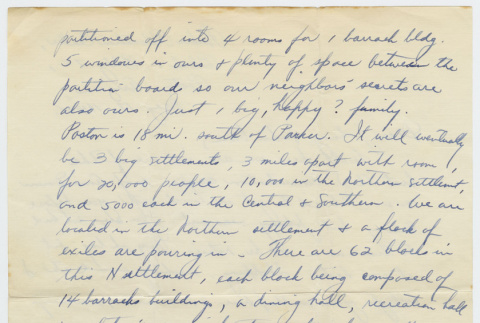 partitioned off into 4 rooms for 1 barrack bldg.
5 windows in ours & plenty of space between the
partition boards so our neighbors' secrets are
also ours. Just 1 big, happy? family.
Poston is 18 mi. south of Parker. It will eventually
be 3 big settlements, 3 miles apart with room
for 20,000 people, 10,000 in the Northern settlemt,
and 5000 each in the Central & Southern. We are
located in the Northern settlement & a flock of
exiles are pouring in - There are 62 blocks in
this N settlement, each block being composed of
14 barracks buildings, a dining hall, recreation hall